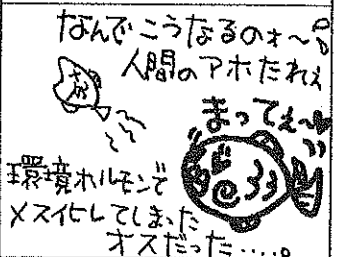 なんでこうなるのォ〜
人間のアホたれぇ
まってぇ〜♥
環境ホルモンで
メス化してしまった
オスだった‥‥。